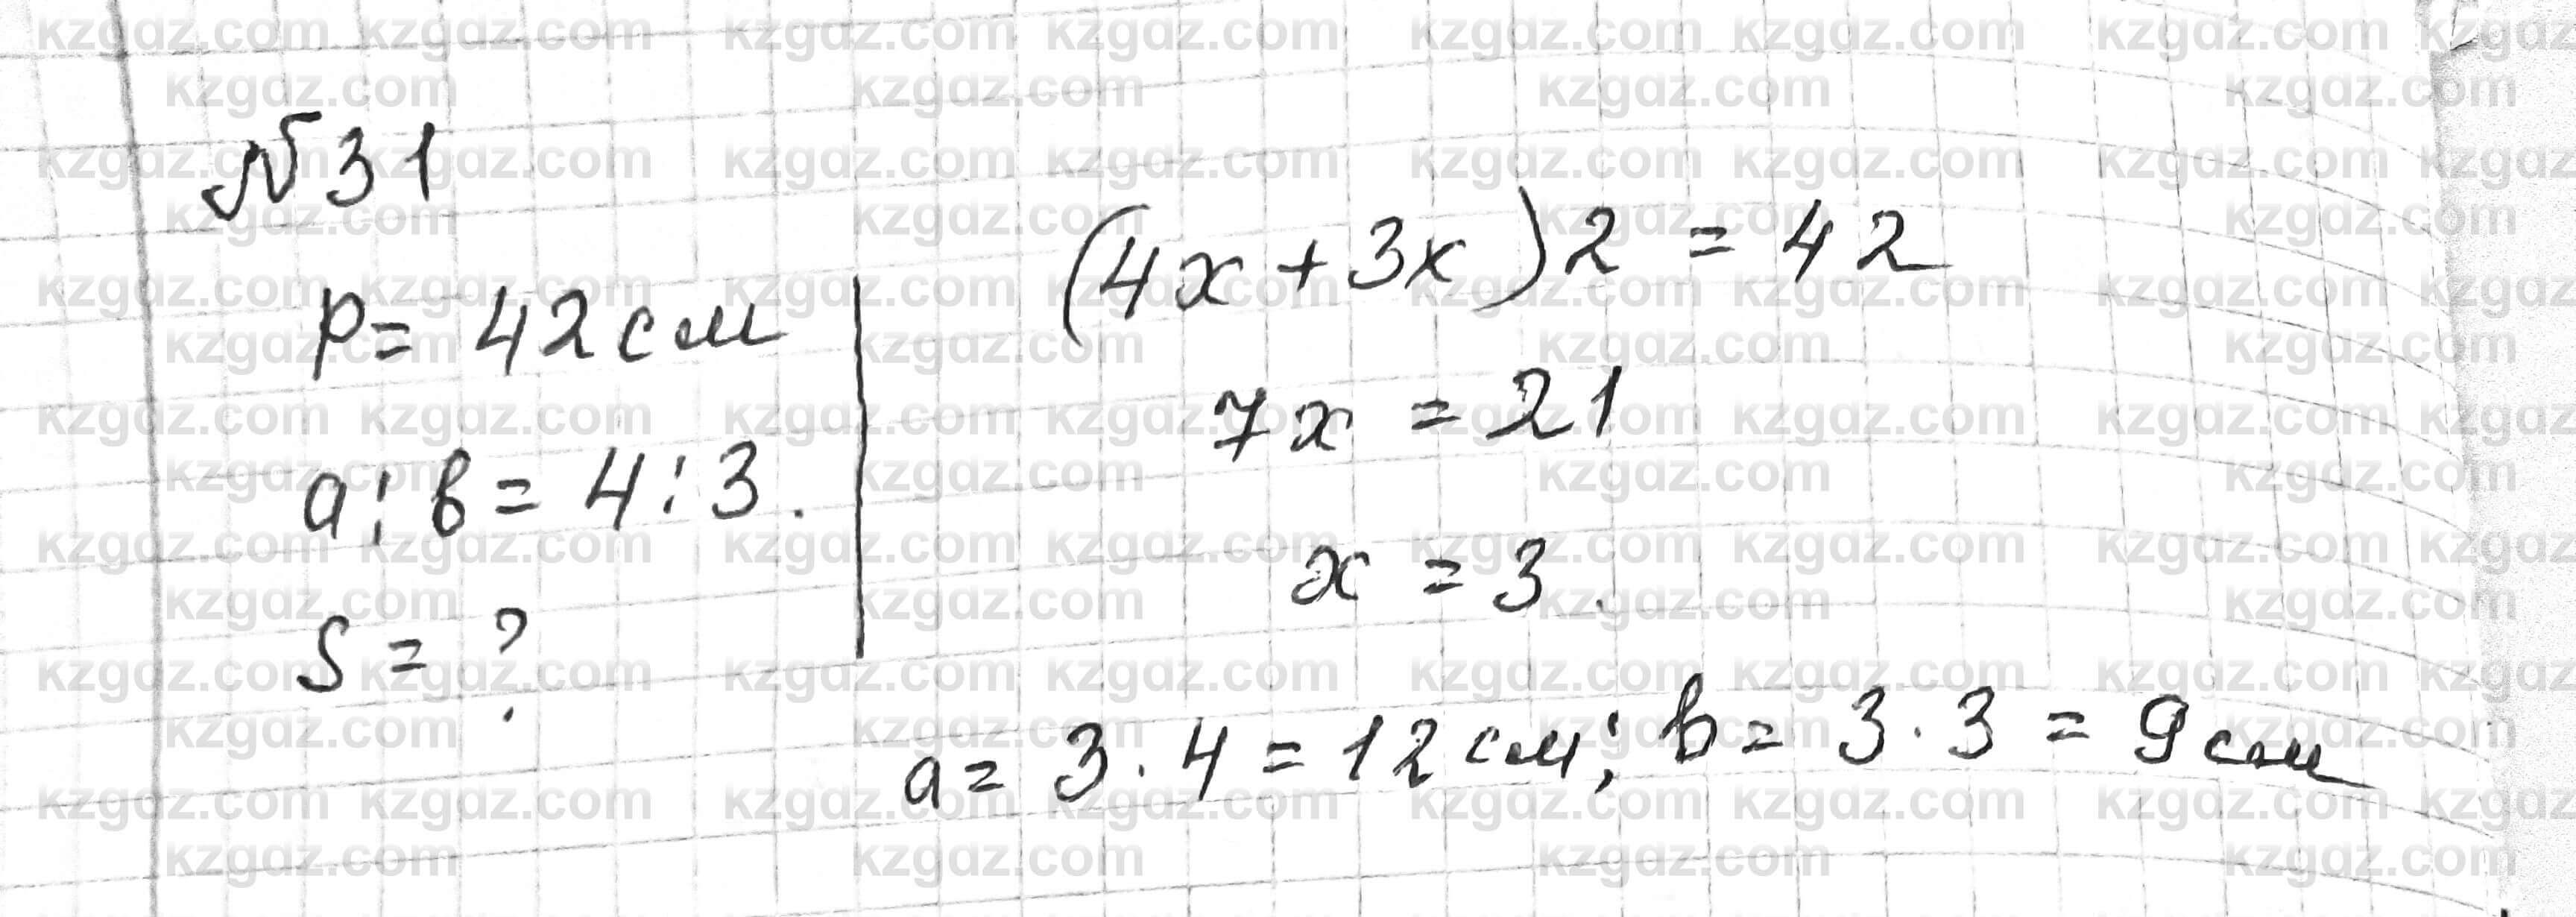 №31
P = 42 см
a : в = 4 : 3.
S = ?
(4x + 3x) 2 = 42
7x = 21
x = 3.
a = 3 · 4 = 12 см; в = 3 · 3 = 9 см
kzgdz.com